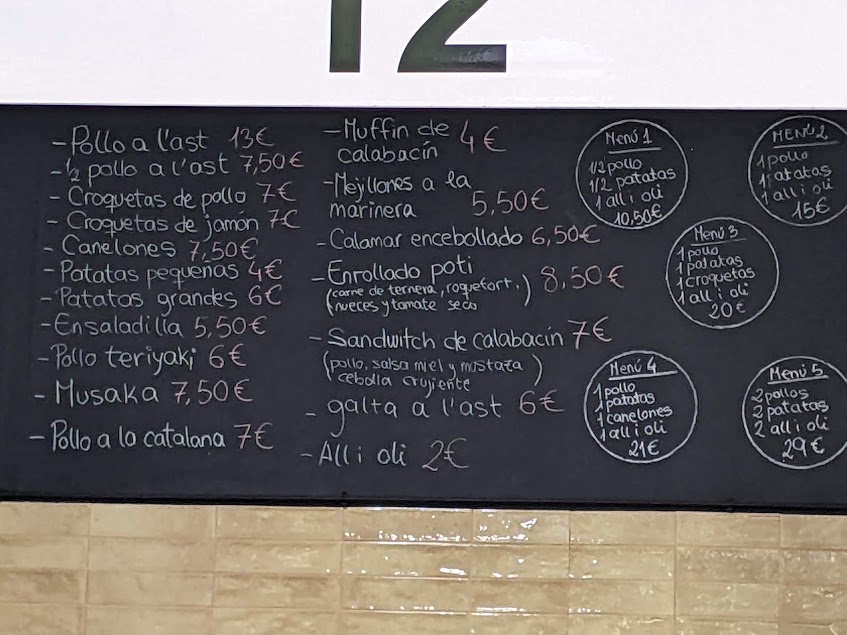 12
- Pollo a l'ast 13€
- 1/2 pollo a l'ast 7,50€
- Croquetas de pollo 7€
- Croquetas de jamón 7€
- Canelones 7,50€
- Patatas pequeñas 4€
- Patatas grandes 6€
- Ensaladilla 5,50€
- Pollo teriyaki 6€
- Musaka 7,50€
- Pollo a la catalana 7€
- Muffin de
calabacín 4€
- Mejillones a la
marinera 5,50€
- Calamar encebollado 6,50€
- Enrollado poti 8,50€
(carne de ternera, roquefort,
nueces y tomate seco)
- Sandwitch de calabacín 7€
(pollo, salsa miel y mostaza
cebolla crujiente)
- galta a l'ast 6€
- All i oli 2€
Menú 1
1/2 pollo
1/2 patatas
1 all i oli
10,50€
MENÚ 2
1 pollo
1 patatas
1 all i oli
15€
Menú 3
1 pollo
1 patatas
1 croquetas
1 all i oli
20€
Menú 4
1 pollo
1 patatas
1 canelones
1 all i oli
21€
Menú 5
2 pollos
2 patatas
2 all i oli
29€